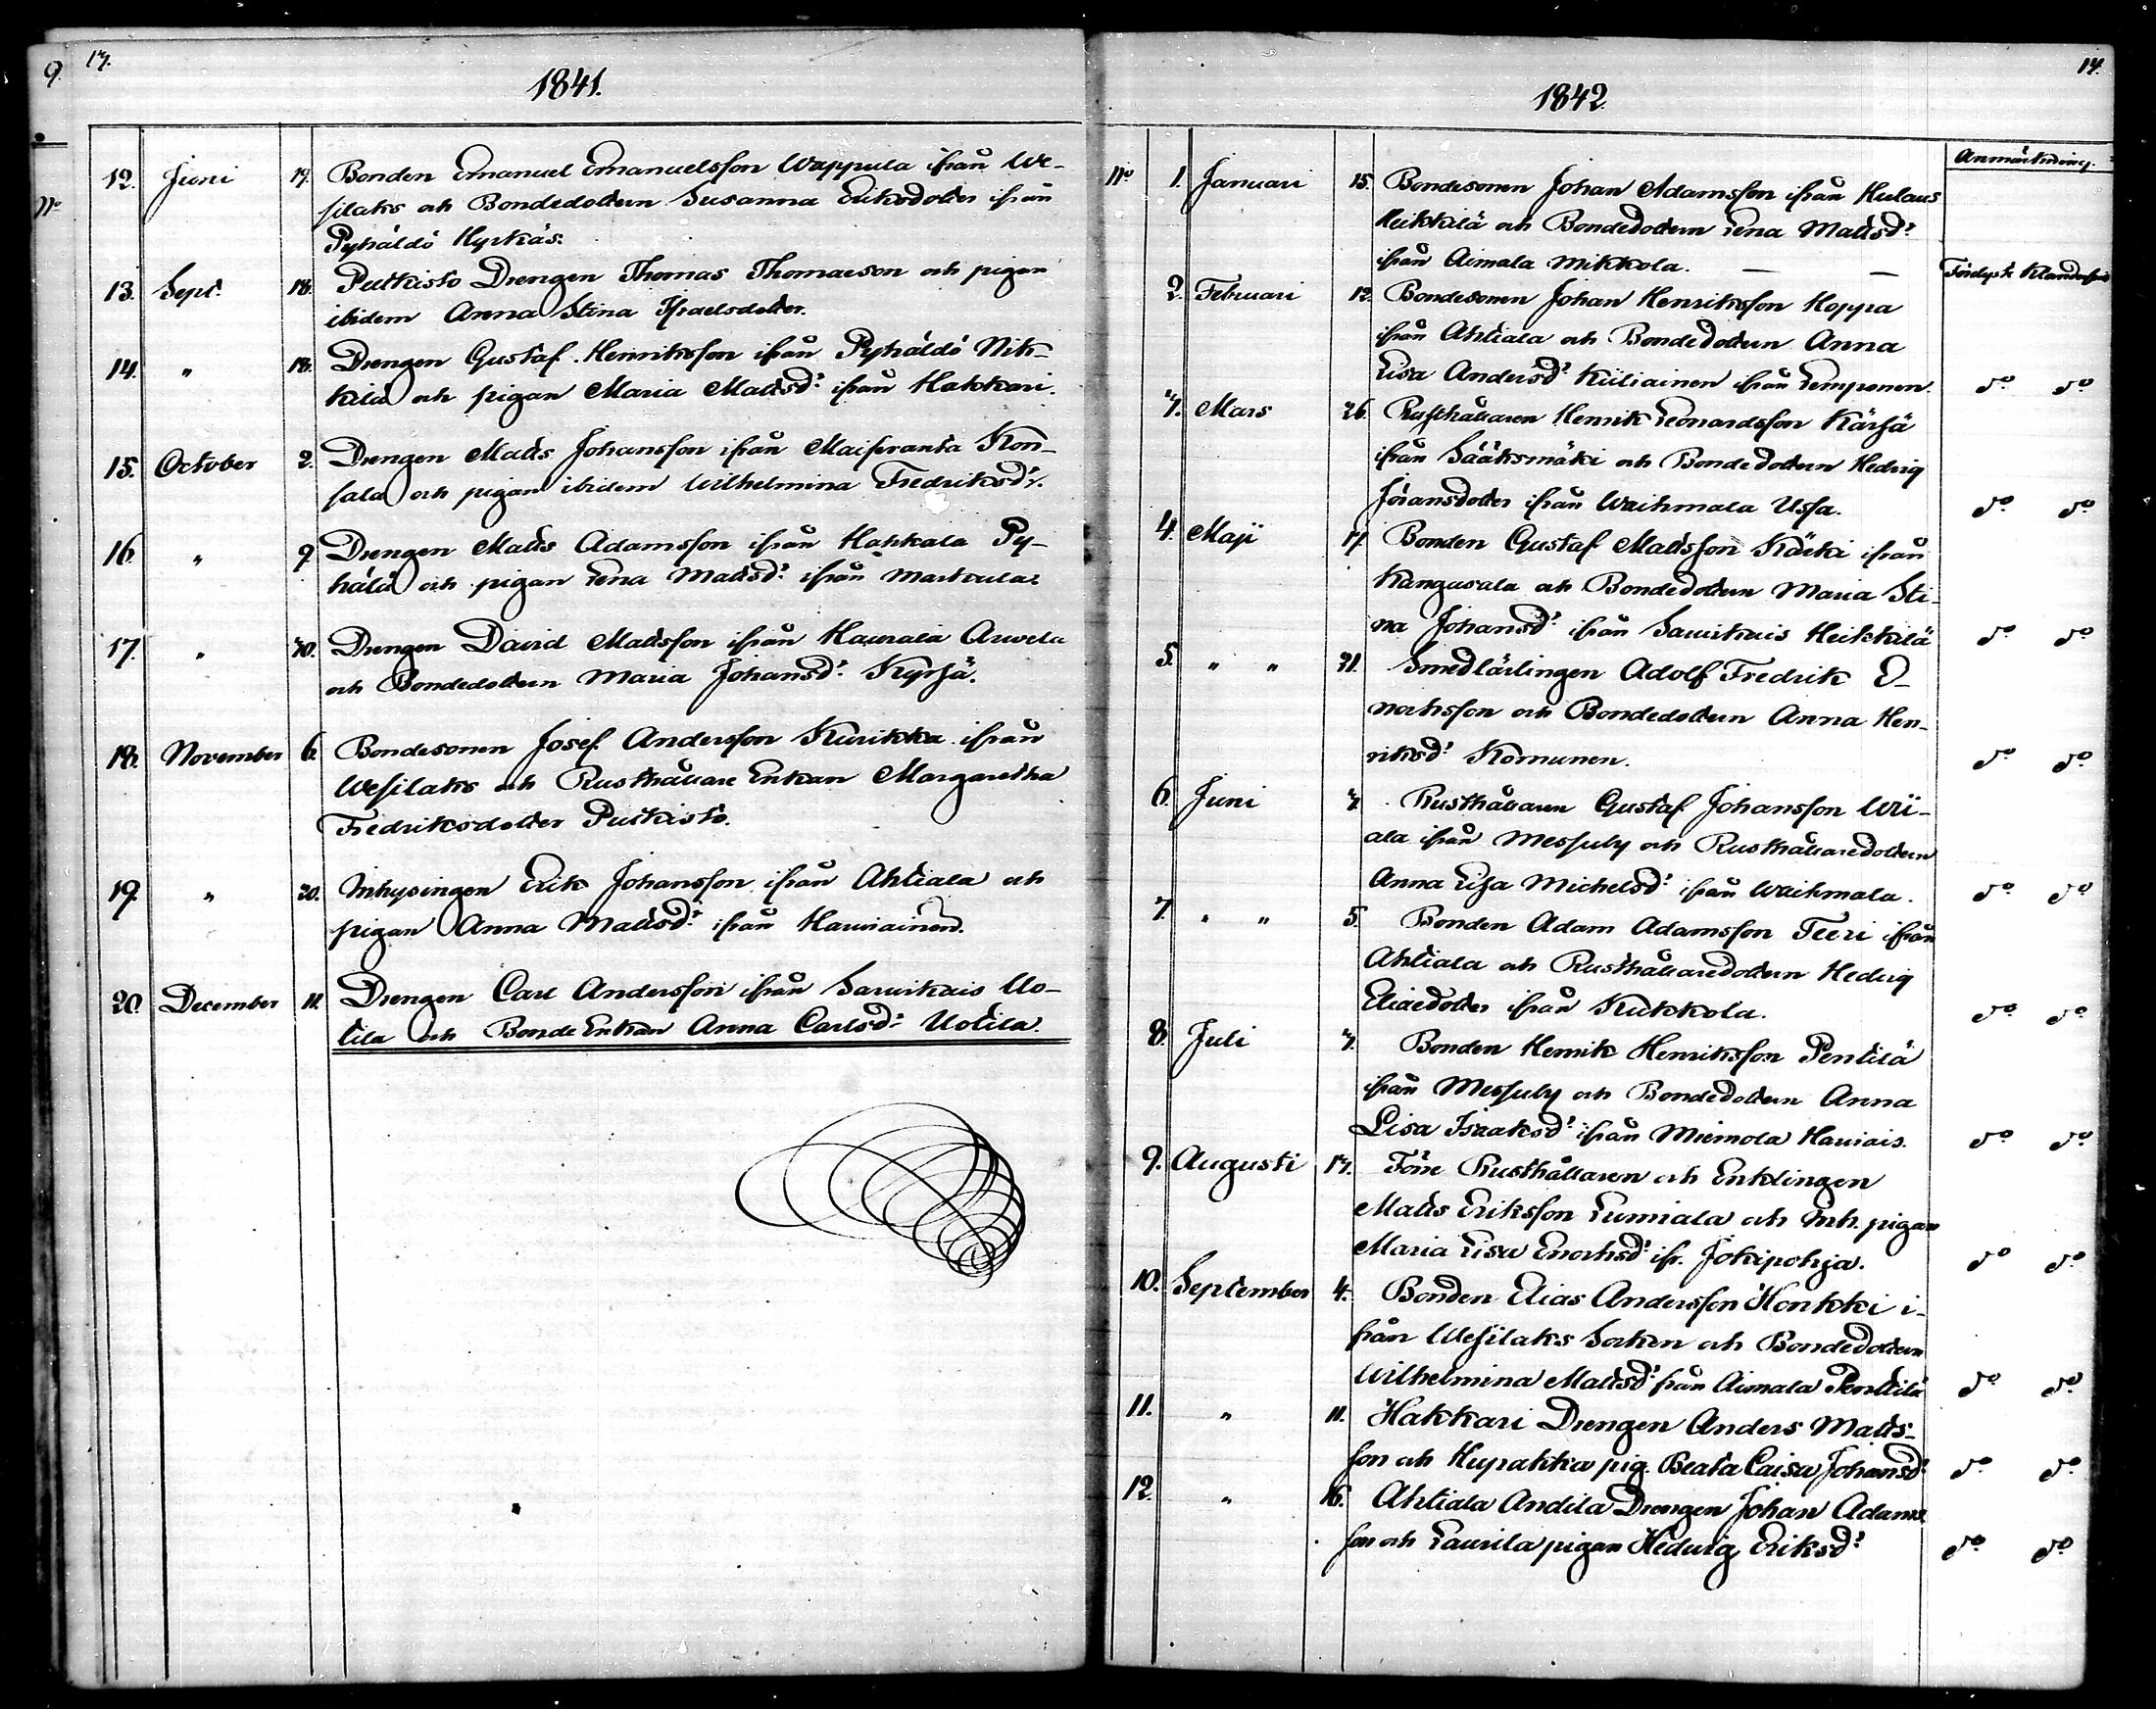 9.
17.
1841.
12. Juni 19. Bonden Emanuel Emanuelsson Wappula ifrån We-
silaks och Bondedottern Susanna Eriksdotter ifrån
Pyhäldö Hyrkäs.
13. Sept. 18. Putkisto Drengen Thomas Thomaeson och pigan
ibidem Anna Stina Israelsdotter.
14. " 18. Drengen Gustaf Henriksson ifrån Pyhäldö Nik-
kilä och pigan Maria Mattsdr ifrån Hakkari.
15. October 2. Drengen Matts Johansson ifrån Maisiranta Kon-
sala och pigan ibidem Wilhelmina Fredriksdr.
16. " 9. Drengen Matts Adamsson ifrån Hahkala Py-
hälä och pigan Lena Mattsdr ifrån
17. " 30. Drengen David Mattsson ifrån Haurala Arwela
och Bondedottern Maria Johansdr
18. November 6. Bondesonen Josef Andersson Kurikka ifrån
Wesilaks och Rusthållare Enkan Margaretha
Fredriksdotter Putkisto.
19. " 20. Inhysingen Erik Johansson ifrån Ahtiala och
pigan Anna Mattsdr ifrån Hauviainen.
20. December 11. Drengen Carl Andersson ifrån Sarvikais Uo-
tila och Bonde Enkan Anna Carlsdr Uotila.
14.
1842
Anmärkning.
No 1. Januari 15. Bondesonen Johan Adamsson ifrån Kulaus
Heikkilä och Bondedottern Lena Mattsdr
ifrån Aimala Mikkola. — — Fördysk
2. Februari 12. Bondesonen Johan Henriksson Hoppa
ifrån Ahtiala och Bondedottern Anna
Lisa Andersdr Kiiliainen ifrån Lemponen. do do
3. Mars 26. Rusthållaren Henrik Leonardsson Kärjä
ifrån Sääksmäki och Bondedottern Hedvig
Jöransdotter ifrån Waihmala Ussa. do do
4. Maji 17. Bonden Gustaf Mattsson Kärki ifrån
Kangasala och Bondedottern Maria Sti-
na Johansdr ifrån Sarvikais Heikkilä do do
5. " " 31. Smedlärlingen Adolf Fredrik E-
nochsson och Bondedottern Anna Hen-
riksdr Komunen. do do
6. Juni 3. Rusthållaren Gustaf Johansson Wii-
ala ifrån Messuby och Rusthållaredottern
Anna Lisa Michelsdr ifrån Waihmala. do do
7. " " 5. Bonden Adam Adamsson Teeri ifrån
Ahtiala och Rusthållaredottern Hedvig
Eliaedotter ifrån Kukkola. do do
8. Juli 3. Bonden Henrik Henriksson Pentilä
ifrån Messuby och Bondedottern Anna
Lisa Isaaksdr ifrån Miemola Hauiais. do do
9. Augusti 17. Förre Rusthållaren och Enklingen
Matts Eriksson Lumiala och Inh. pigan
Maria Lisa Enochsdr ifr. Jokipohja. do do
10. September 4. Bonden Elias Andersson Honkki i-
från Wesilaks Socken och Bondedottern
Wilhelmina Mattsdr från Aimala Penttilä do do
11. " 11. Hakkari Drengen Anders Matts-
son och Hupakka pig. Beata Caisa Johansdr do do
12. " 16. Ahtiala Andila Drengen Johan Adams-
son och Laurila pigan Hedvig Eriksdr do do